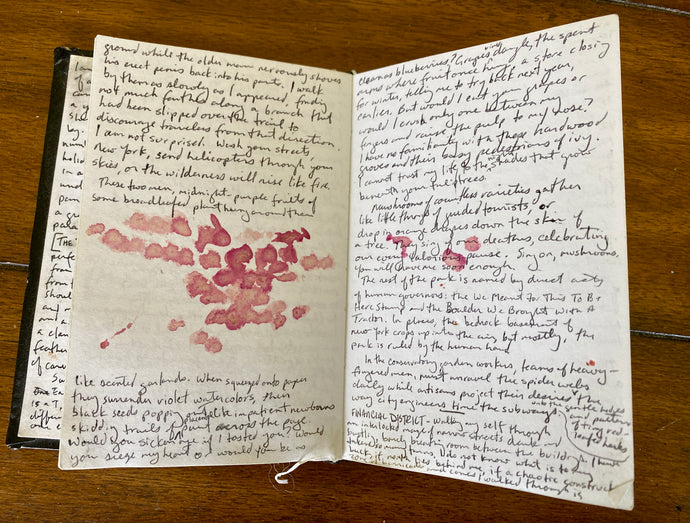 of
a
nu
[THE
perfe
from
from
Shou
and
a claw
feather
of cav
Su
is a T,
differ
ground while the older man nervously shoves
his erect penis back into his pants. I walk
by them as slowly as I appeared, finding
not much farther along a branch that
had been slipped over the trail to
discourage travelers from that direction.
I am not surprised. Wash your streets,
New York, send helicopters through your
skies, or the wilderness will rise like fire.
These two men, midnight-purple fruits of
some broadleafed plant hang around them
like scented garlands. When squeezed onto paper
they surrender violet watercolors, their
black seeds popping out like impatient newborns
skidding trails of placenta across the page.
Would you sicken me if I tasted you? Would
you siege my heart or would you be as
clean as blueberries? Grapes dangle, the spent
vine
arms where fruit once hung, a store closing
for winter, telling me to try back next year,
earlier. But would I eat your grapes or
would I crush only one between my
fingers and raise the pulp to my nose?
I have no familiarity with these hardwood
groves and their busy pedestrians of ivy.
I cannot trust my life to the shades that grow
beneath your full trees.
Mushrooms of countless varieties gather
like little throngs of guided tourists, or
drop in orange drapes down the skin of
a tree. They sing of deaths, celebrating
our every calorious pause. Sing on, mushrooms.
You will have me soon enough.
The rest of the park is named by direct acts
of human governors: the We Meant For This To Be
Here Stump and the Boulder We Brought With A
Tractor. In places, the bedrock basement of
New York crops up into the air, but mostly, the
park is ruled by the human hand.
In the conservatory garden workers, teams of heavy-
fingered men, must unravel the spider webs
daily while artisans project their desires the
way city engineers time the subways.
onto the gentle hedges
and patterns
of trim and
leafed herbs
FINANCIAL DISTRICT - Walking my self through
an interlocked maze of narrow streets, drink
from the lonely fountain between the buildings. I have
taken so many turns, I do not know what is to my
back, if north lies behind me, if a chaotic construct
of barricades and cones I walked through is